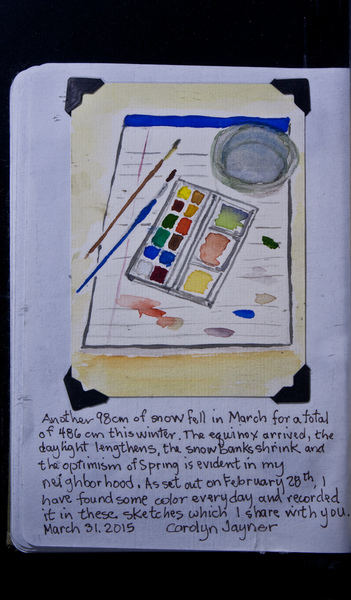 Another 98cm of snow fell in March for a total
of 486 cm this winter. The equinox arrived, the
daylight lengthens, the snowbanks shrink and
the optimism of Spring is evident in my
neighborhood. As set out on February 28th, I
have found some color everyday and recorded
it in these sketches which I share with you.
March 31, 2015 Carolyn Jayner